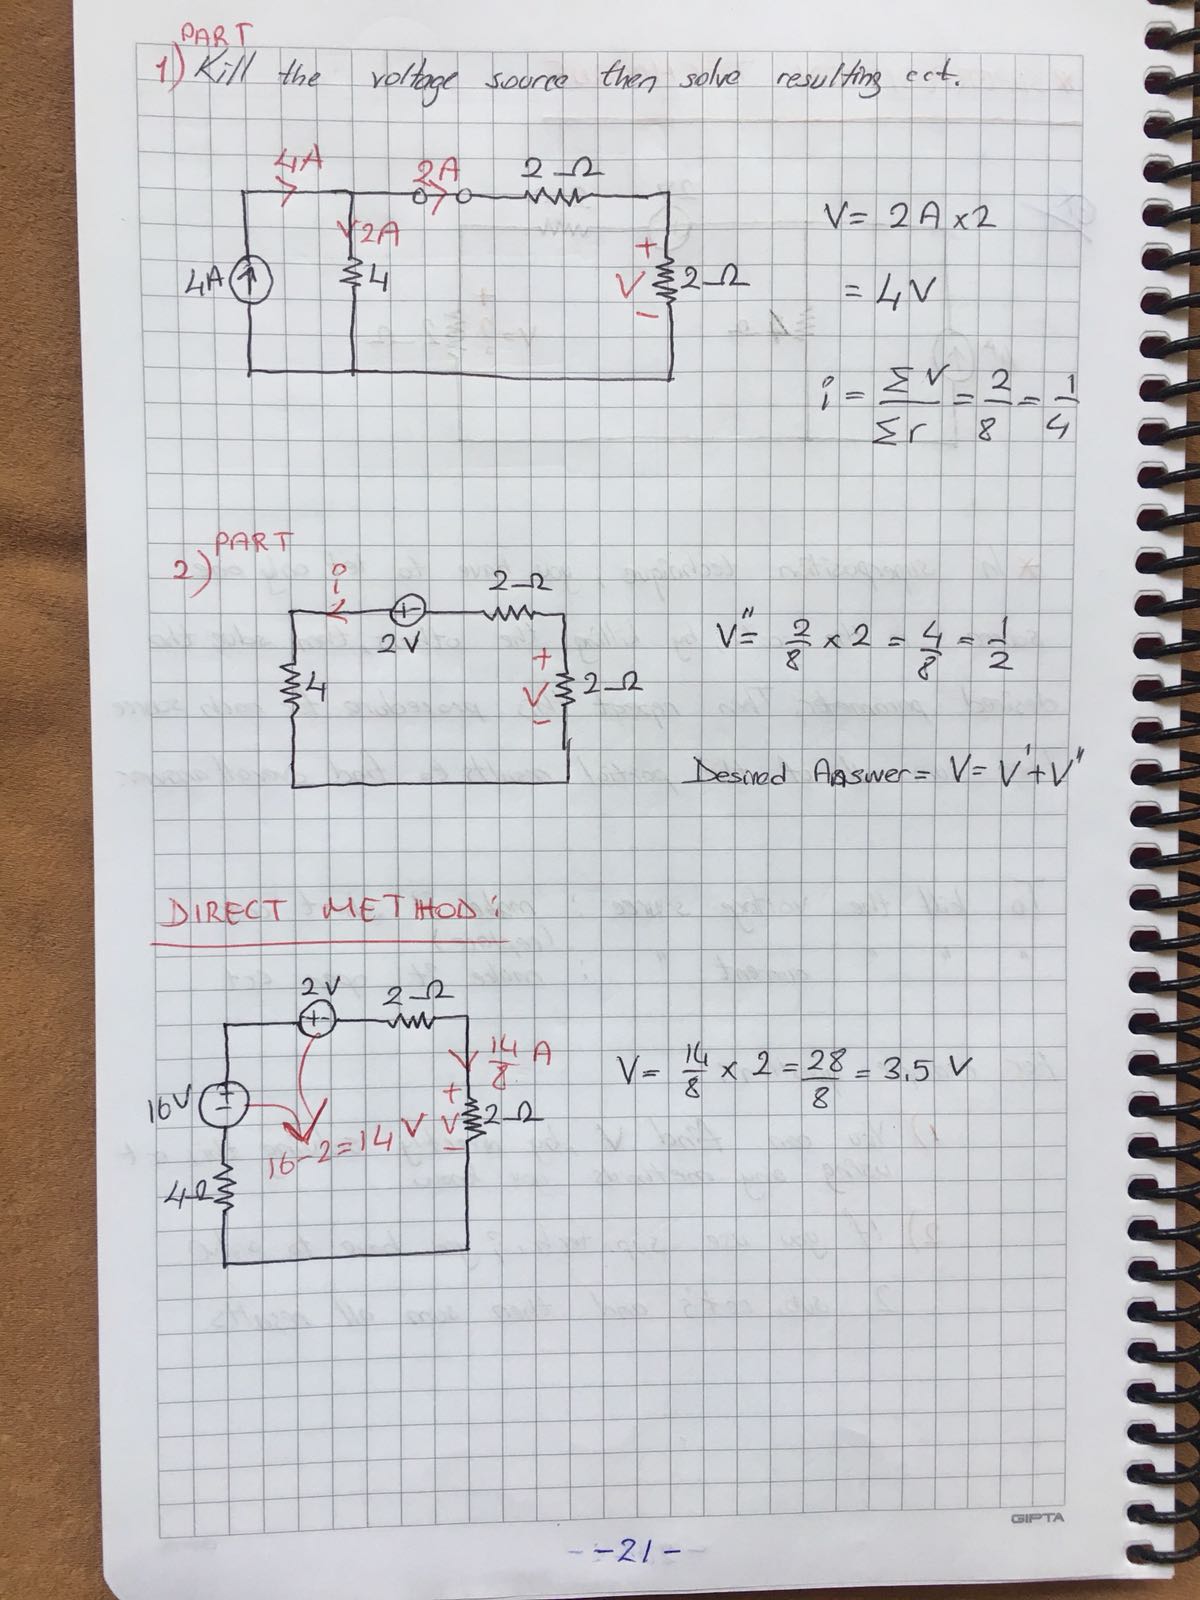 PART
1) Kill the voltage source then solve resulting cct.
4A
2A
2 Ω
2A
4A
4
+
V
-
2 Ω
V = 2A x 2
= 4V
i = ΣV/Σr = 2/8 = 1/4
PART
2)
i
2 Ω
+-
2V
4
+
V
-
2 Ω
V" = 2/8 x 2 = 4/8 = 1/2
Desired Answer = V = V' + V"
DIRECT METHOD:
2V
2 Ω
+-
14/8 A
16V
+
-
+
V
-
2 Ω
16-2=14 V
4Ω
V = 14/8 x 2 = 28/8 = 3.5 V
GIPTA
--21--